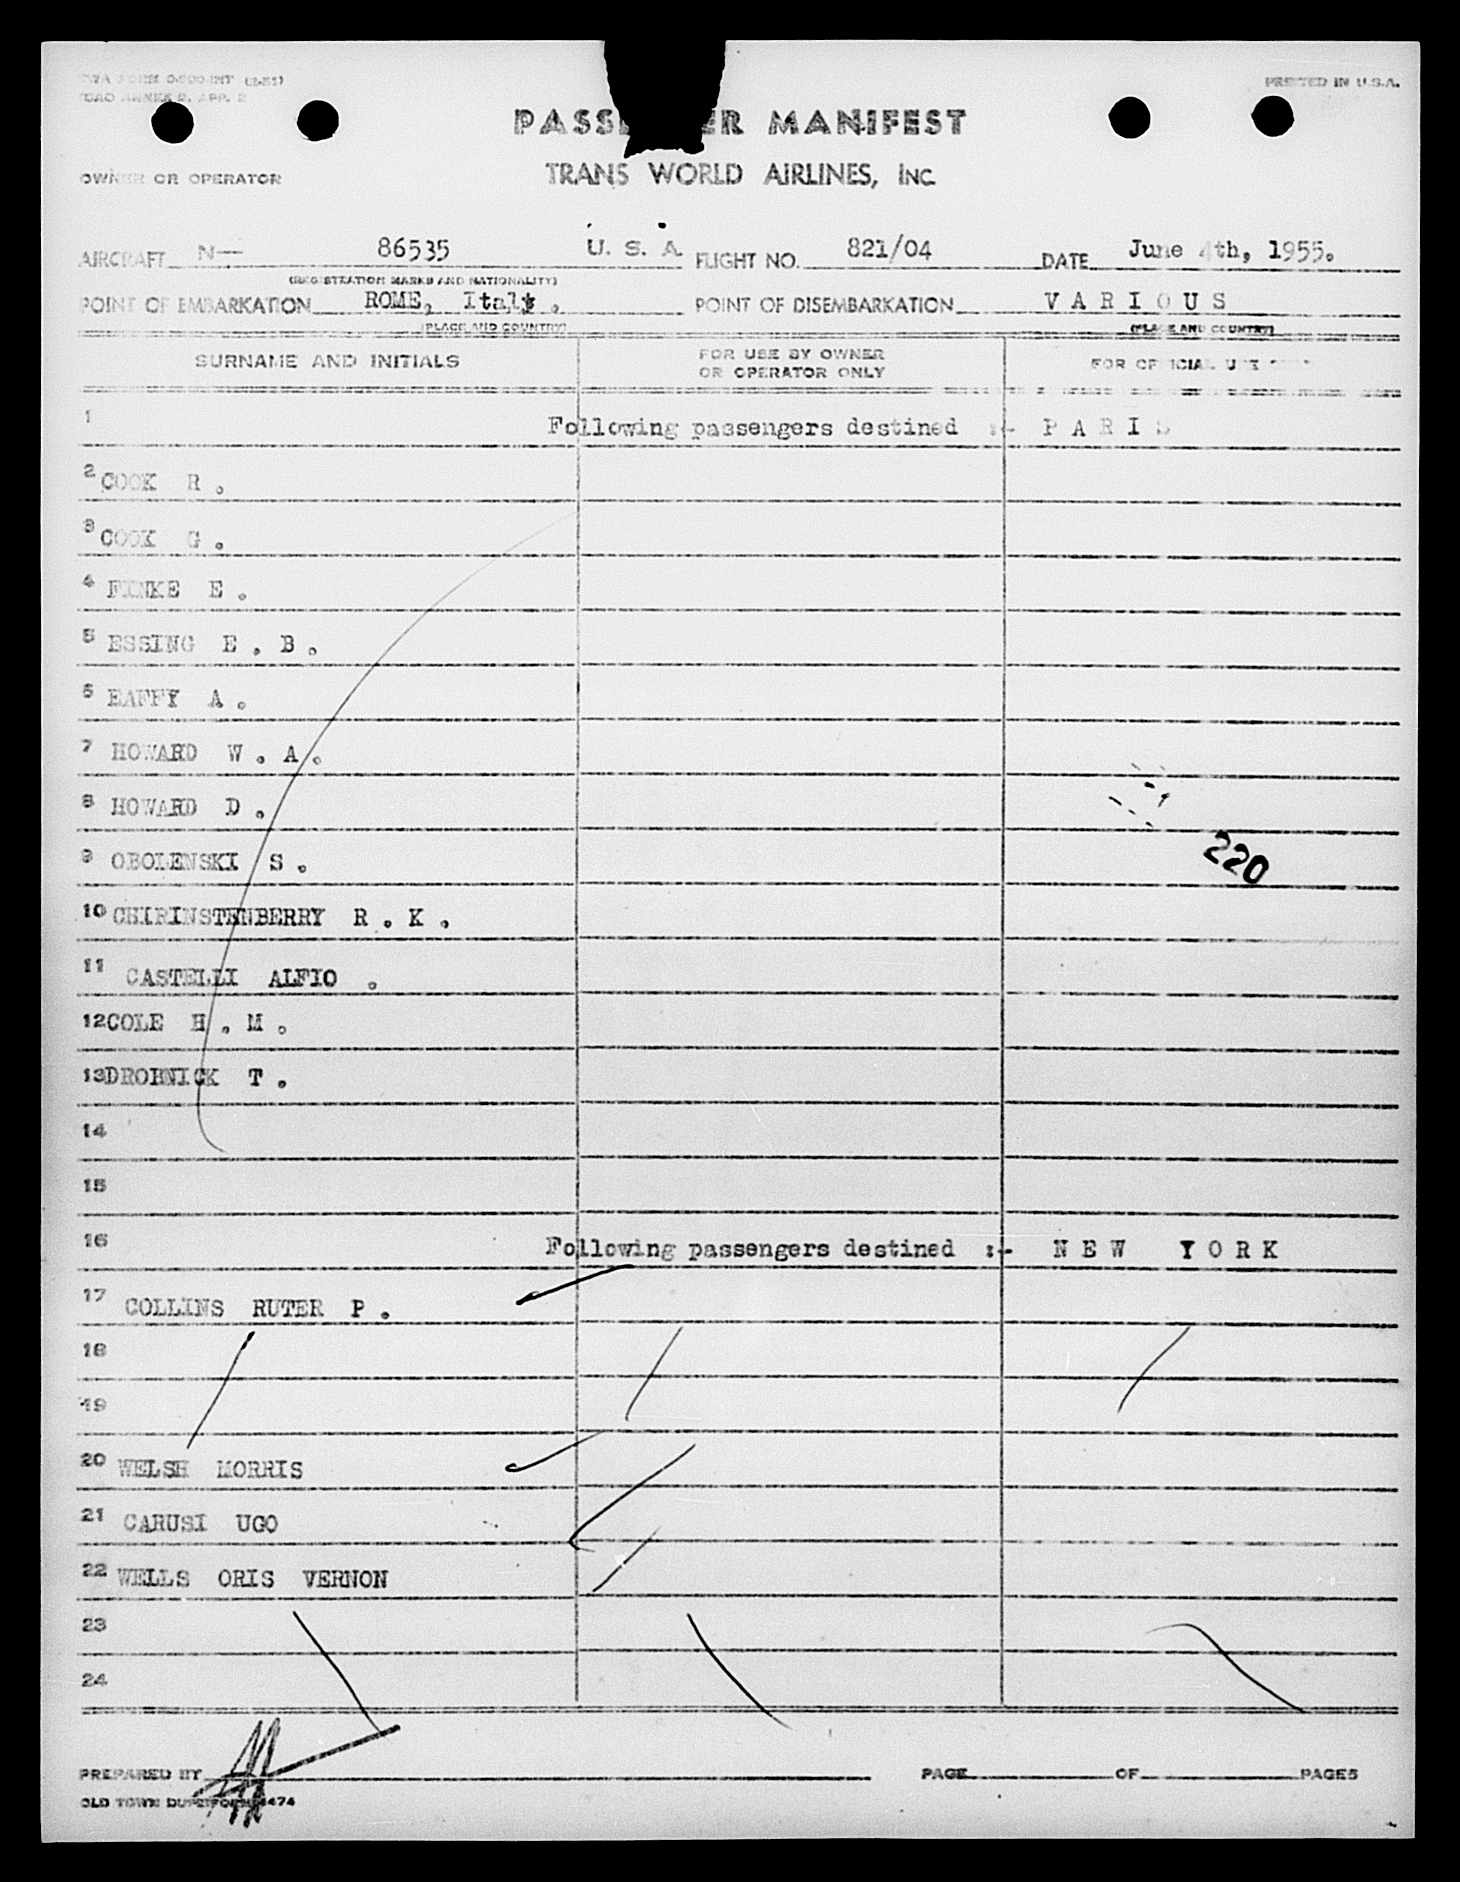 PRINTED IN U.S.A.
PASSENGER MANIFEST
OWNER OR OPERATOR
TRANS WORLD AIRLINES, INC.
AIRCRAFT N— 86535 U. S. A FLIGHT NO. 821/04 DATE June 4th, 1955.
(REGISTRATION MARKS AND NATIONALITY)
POINT OF EMBARKATION ROME, Italy . POINT OF DISEMBARKATION V A R I O U S
(PLACE AND COUNTRY) (PLACE AND COUNTRY)
SURNAME AND INITIALS FOR USE BY OWNER OR OPERATOR ONLY FOR OFFICIAL USE
1 Following passengers destined :- P A R I S
2 COOK R .
3 COOK G .
4 FINKE E .
5 ESSING E . B .
6 A .
7 HOWARD W . A .
8 HOWARD D .
9 OBOLENSKI S .
220
10 CHIRINSTENBERRY R . K .
11 CASTELLI ALFIO .
12 COLE H . M .
13 T .
14
15
16 Following passengers destined :- N E W Y O R K
17 COLLINS RUTER P .
18
19
20 WELSH MORRIS
21 CARUSI UGO
22 WELLS ORIS VERNON
23
24
PREPARED BY PAGE OF PAGES
OLD TOWN